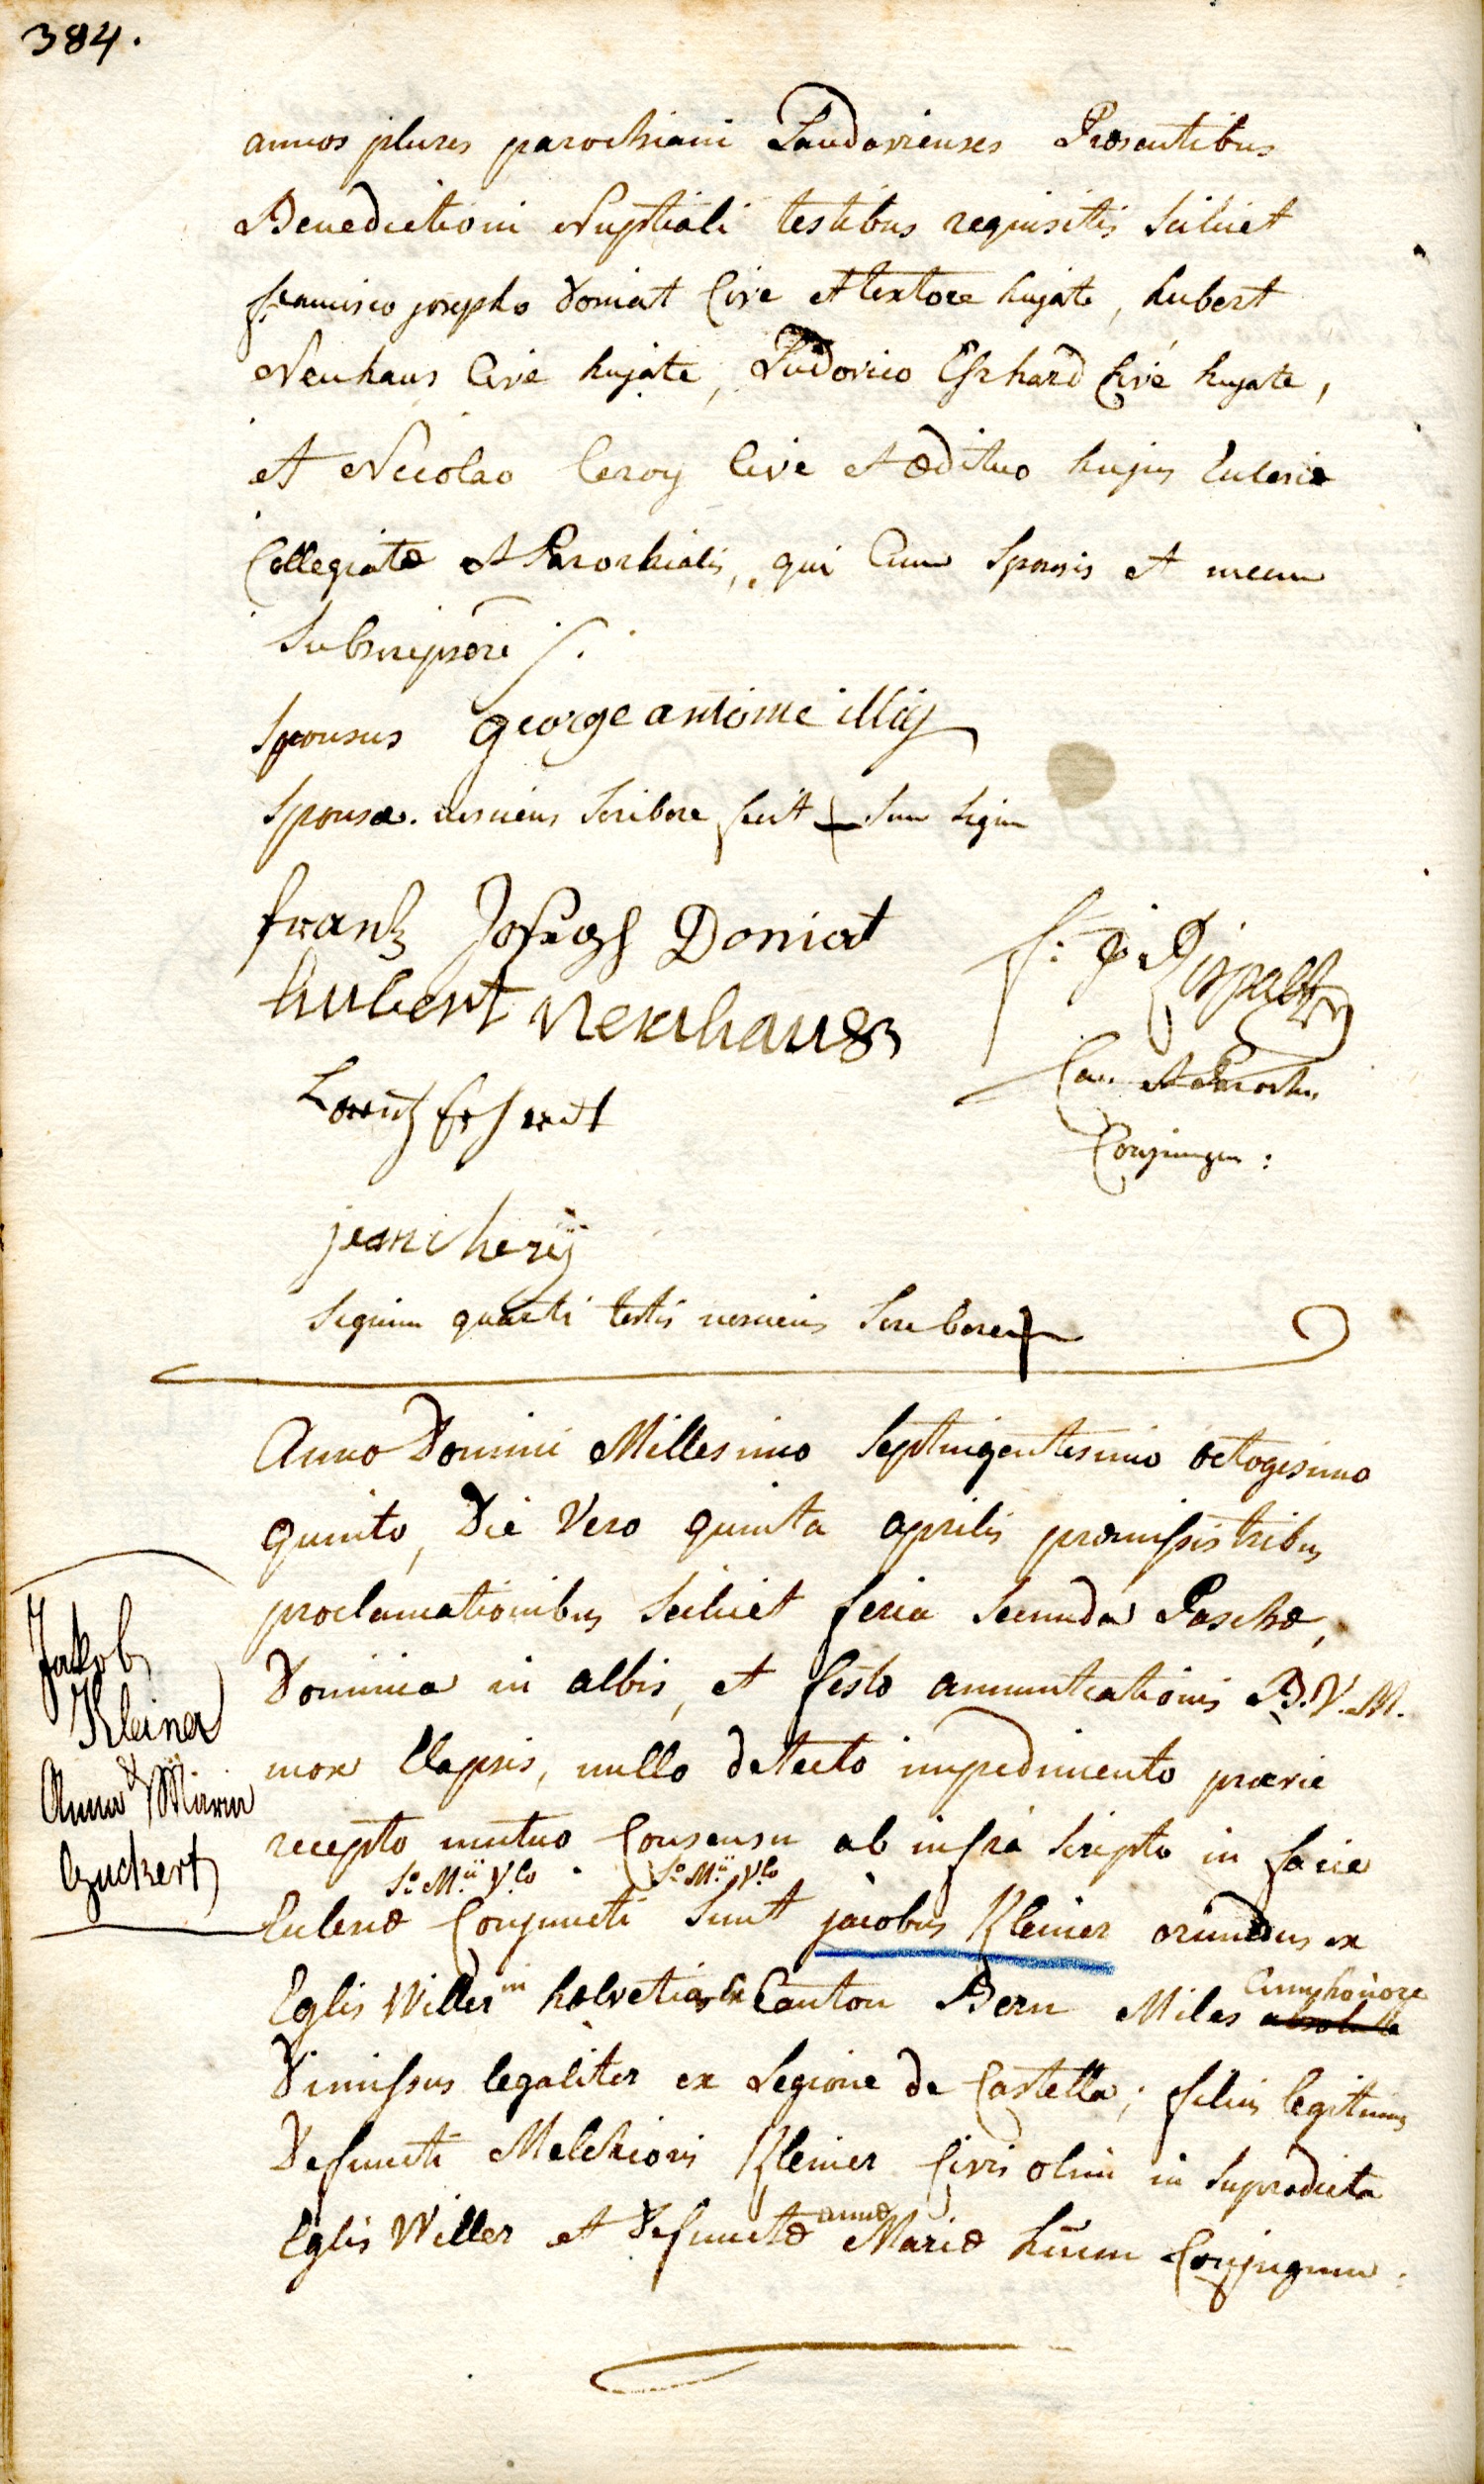 384.
annos plures parochiani Landavienses Præsentibus
Benedictioni Nuptiali testibus requisitis scilicet
francisco josepho Doniat Cive et textore hujate, hubert
Neuhaus Cive hujate, Ludovico Ehrhard Cive hujate,
et Nicolao leroy Cive et ædituo hujus Eclesiæ
Collegiatæ et Parochialis, qui Cum Sponsis et mecum
Subscripsere
Sponsus george antoine illig
Sponsa nesciens scribere fecit + Suu Signu
frantz Joseph Doniat
hubert Neuhaus
Can et Parochus
Conjungens:
Lorentz Erhardt
jean
Signum quarti testis nescieus Scribere +
Anno Domini Millesimo Septuigentesimo octogesimo
quinto, Die Vero quinta aprilis præmissis tribus
proclamationibus Scilicet feria Secunda Paschæ,
Dominica in albis, et festo annuntiationis B.V.M.
mox Elapsis, nullo detecto impedimento prævie
recepto mutuo Consensu ab infra scripto in facie
Sæ Mii Vlo Sæ Mii Vlo
Eclesiæ Conjuncti Sunt jacobus Kleiner oriundus ex
Eglis Willer in helvetia ex Canton Bern Miles Cumhonore
Dimissus legaliter ex Legione de Castella; filius legitimus
Defuncti Melchioris Kleiner Civis olim in Supradicta
Eglis Willer et Defunctæ annæ Mariæ Conjugum.
Jakob
Kleiner
&
Anna Maria
Guckert